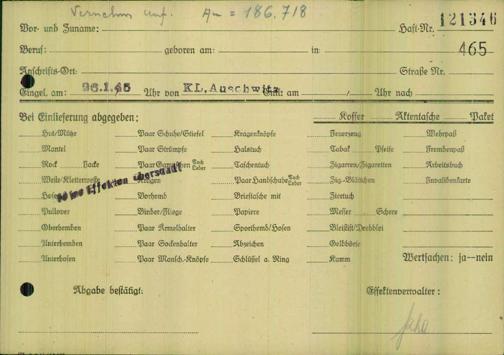 Au = 186.718
Vor- und Zuname: Haft-Nr. 121346
Beruf: geboren am: in 465
Anschrifts-Ort: Straße Nr.
Eingel. am: 26.1.45 Uhr von KL. Auschwitz Entl. am / Uhr nach
Bei Einlieferung abgegeben: Koffer Aktentasche Paket
Hut/Mütze Paar Schuhe/Stiefel Kragenknöpfe Feuerzeug Wehrpaß
Mantel Paar Strümpfe Halstuch Tabak Pfeife Fremdenpaß
Rock Jacke Paar Gamaschen Tuch Leder Taschentuch Zigarren/Zigaretten Arbeitsbuch
Weste-Kletterweste Kragen Paar Handschuhe Tuch Leder Zig-Blättchen Invalidenkarte
keine Effekten überstellt
Hosen Vorhemd Brieftasche mit
Pullover Binder/Fliege Papiere Messer Schere
Oberhemden Paar Ärmelhalter Sporthemd/Hosen Bleistift/Drehblei
Unterhemden Paar Sockenhalter Abzeichen Geldbörse
Unterhosen Paar Mansch.-Knöpfe Schlüssel a. Ring Kamm Wertsachen: ja--nein
Abgabe bestätigt: Effektenverwalter: